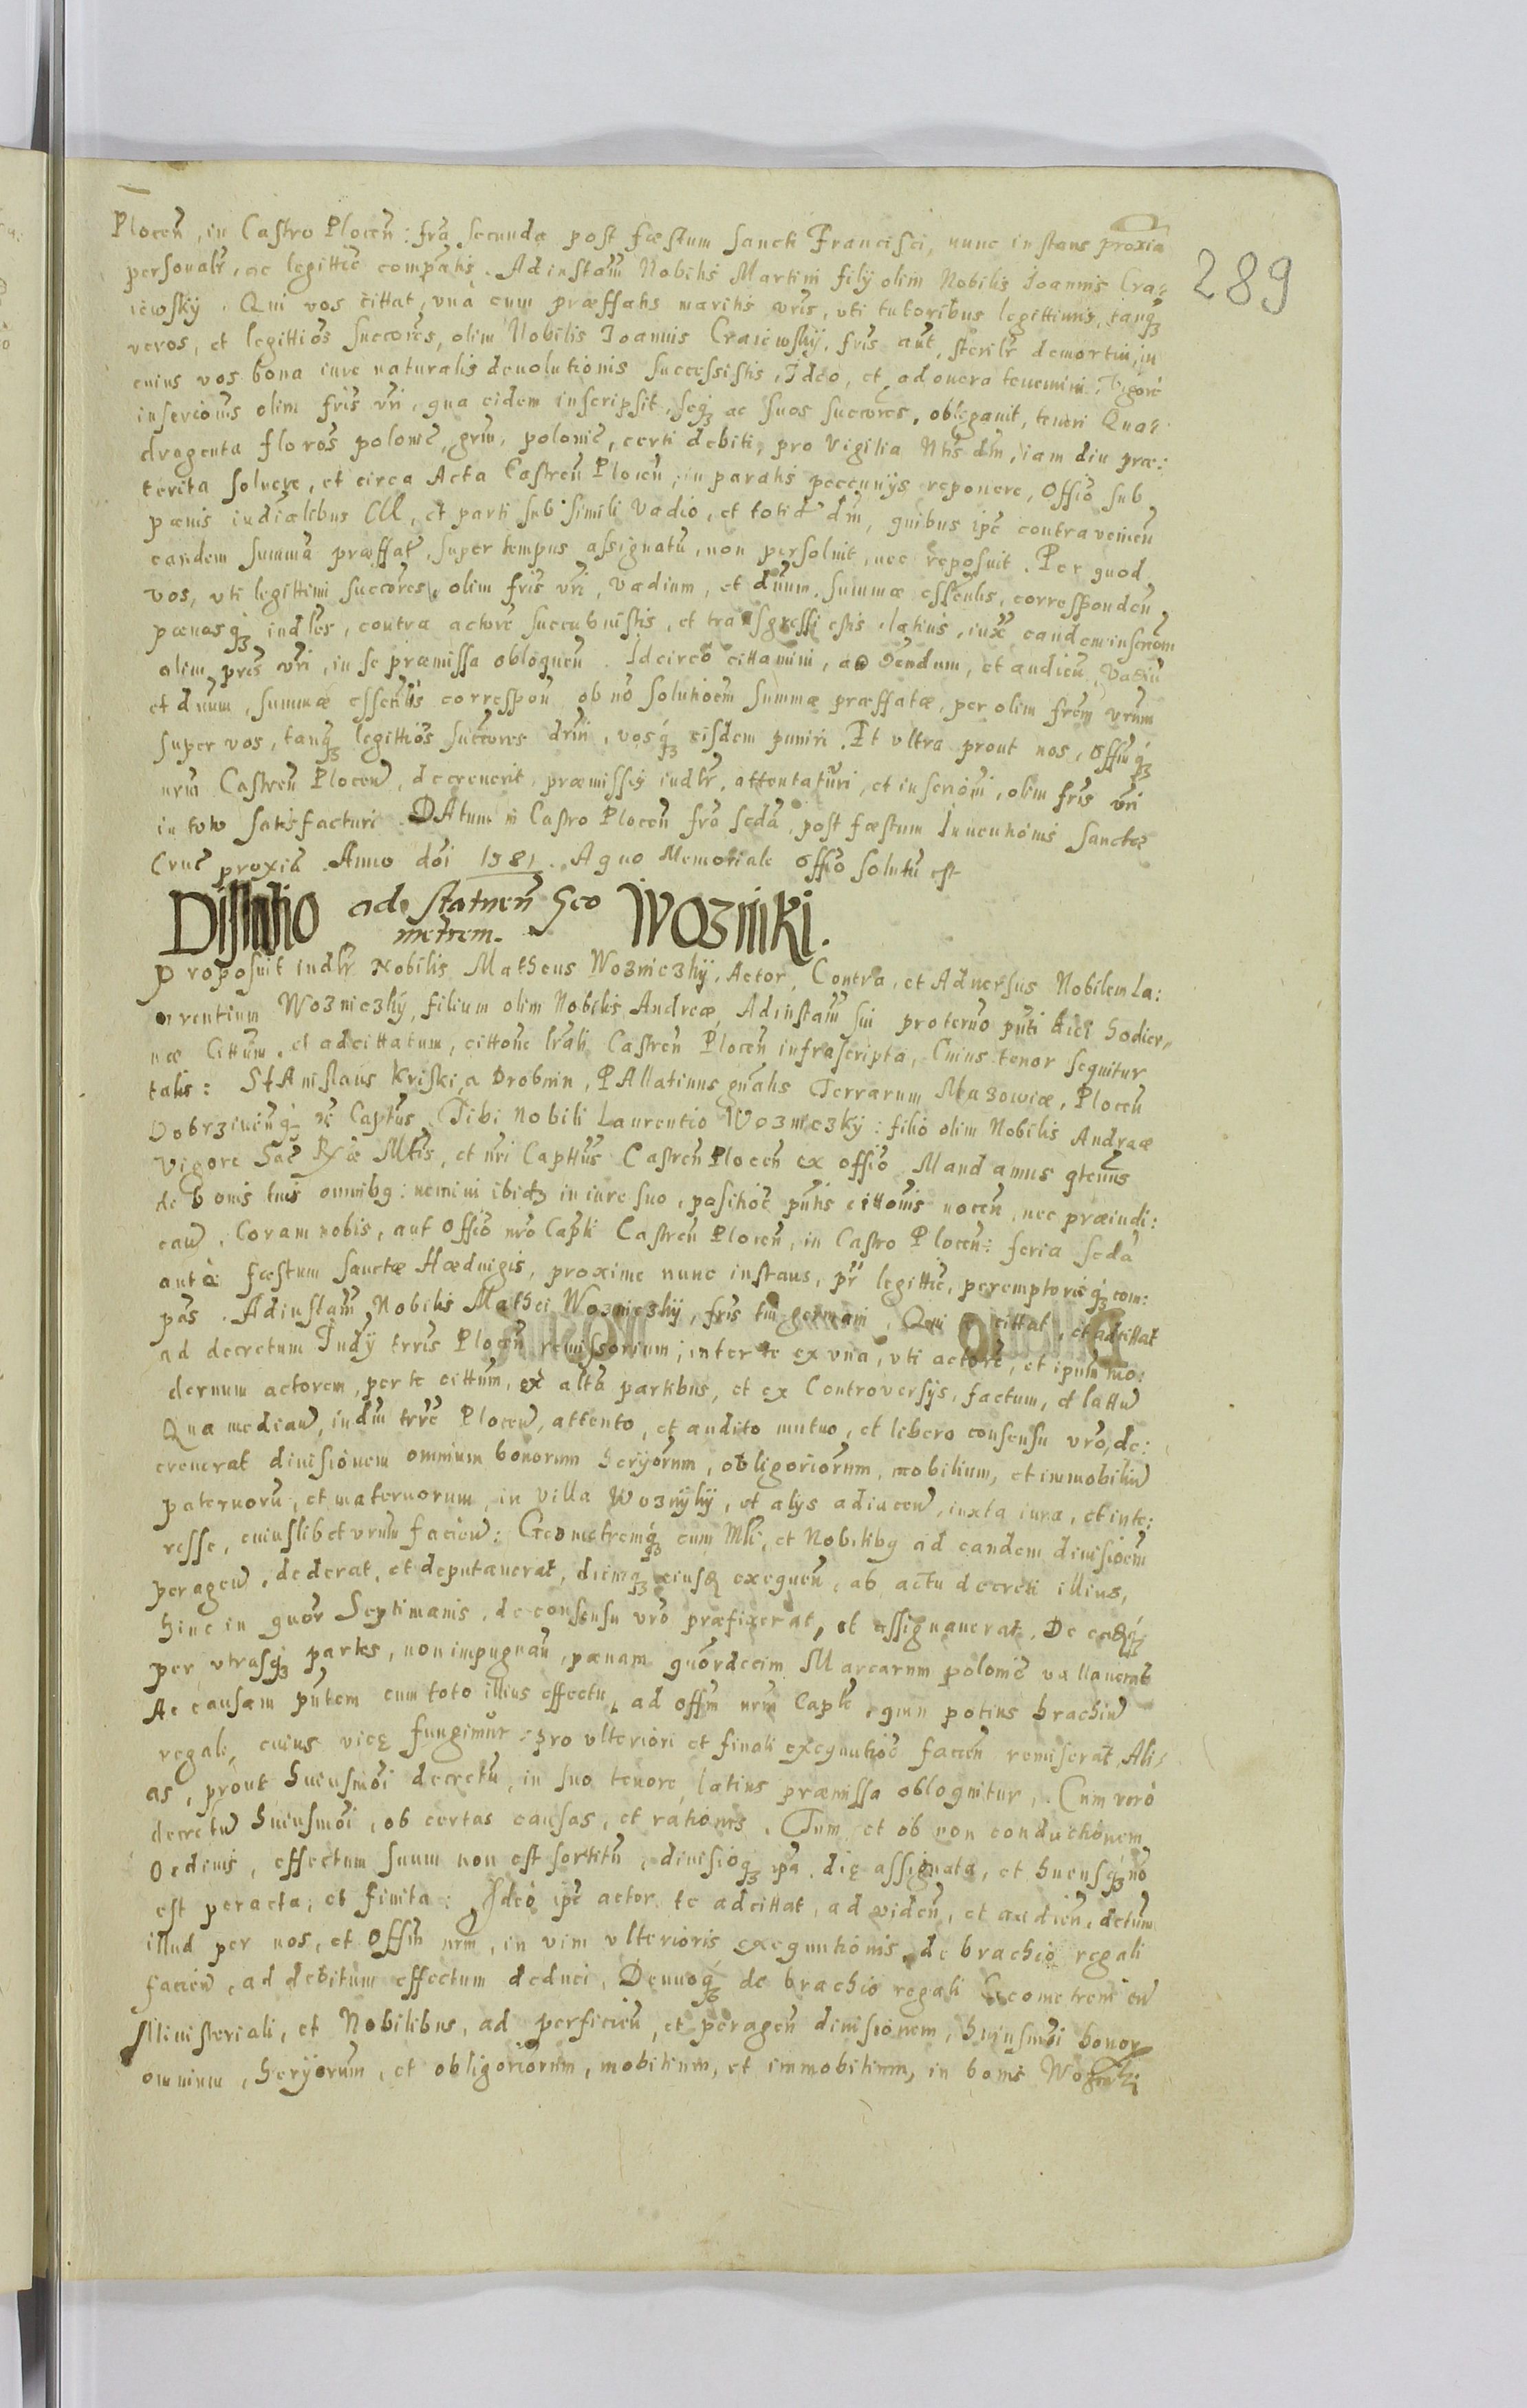 289
Plocen̄, in Castro Plocen̄: fra secunda post fæstum sancti Francisci, nunc instans proxīa
personalr̄, ac legittiē compātis. Ad instam̄ Nobilis Martini filij olim Nobilis Joannis Cra=
iewsky. Qui vos cittat, vnà cum præffatis maritis vr̄is, vti tutoribus legittimis, tanq̄ʒ
veros, et legittīos succōres, olim Nobilis Joannis Craiewskij, fr̄is aūt, sterilr̄ demortui, in
cuius vos bona iure naturalis deuolutionis successistis, Ideo, et ad onera tenemini. Vigore
inscrīonis olim fr̄is vr̄i, qua eidem inscripsit, seq̄ʒ ac suos succōres, obligauit, teneri Qua=
dragenta floros polonic̄, grm̄, polonic̄, certi debiti, pro vigilia Ntīs dn̄i, iam diu præ:
terita soluere, et circa Acta Castren̄ Plocen̄, in paratis peccunijs reponere, Offīo sub
pænis indiālibus, et parti sub simili vadio, et totid dn̄i, quibus ipē contraveniēn
eandem summā præffat̄, super tempus assignatū, non persoluit, nec reposuit. Per quod
vos, vti legittimi succōres, olim fr̄is vr̄i, vadium, et dn̄um, summæ essen̄lis, corresponden̄
pænasq̄ʒ ind̄les, contra actorē succubuistis, et transgressi estis, latius, iuxᵃ eandem inscrīom
olim pr̄is vr̄i, in se præmissa obloquen̄. Idcirco cittamini, ad vendum, et audien̄, vadiū
et dn̄um, summæ essen̄lis correspon̄, ob nō solutiōem summæ præffatæ, per olim fr̄em vr̄um
super vos, tanq̄ʒ legittīos succōres dn̄ri, vosq̄ʒ eisdem puniri. Et vltra prout nos, offm̄q̄ʒ
nr̄m Castren̄ Plocen̄, decreuerit, præmissis indlr̄, attentaturi, et inscrīoni, olim fr̄is vr̄i
in toto satisfacturi. DAtum in Castro Plocen̄ fr̄a scdā, post fæstum Inuentiōnis sanctæ
Cruc̄ proxīa. Anno dōi 1581. A quo Memoriale offīo solutū est
Disillatio ad statuen̄ Geo WoznikI.
metrem.
Proposuit indlr̄ Nobilis Matheus Wozniczkij, Actor, Contra, et Aduersus Nobilem La:
urentium Wozniczkij, filium olim Nobilis Andreæ, Ad instam̄ sui pro termo pn̄ti diei hodier,,
næ Cittum, et adcittatum, cittōne lr̄ali Castren̄ Plocen̄ infrascripta, Cuius tenor sequitur
talis: StAnislaus Kriski, a Drobnin, PAllatinus gn̄alis Terrarum Mazowiæ, Plocen̄
Dobrzinien̄q̄ʒ etc Captūs. Tibi Nobili Laurentio Wozniczky: filio olim Nobilis Andreæ
Vigore Sac̄ Rīæ Mtīs, et nr̄i Captūs Castren̄ Plocen̄ ex offīo. Mandamus qtenus
de bonis tuis omnibq: nemini ibidʒ in iure suo, positiōē pn̄tis cittōnis nocen̄, nec præiudi:
can̄, Coram nobis, aut offīo nr̄o Capli Castren̄ Plocen̄, in Castro Plocen̄: feria scdā
antè fæstum sanctæ Hæduigis, proxime nunc instans, pr̄ legittiē, peremptoriēq̄ʒ com:
pās. Ad instam̄ Nobilis Mathei Wozniczkij, fr̄is tui germani. Qui te cittat, et adcittat
ad decretum Indij trr̄is Plocen̄ remissorium; inter te ex vna, vti actorē, et ipsm̄ mo:
dernum actorem, per te cittum, ex altᵃ partibus, et ex Controversijs, factum, et lattū
Qua median̄, indm̄ trr̄e Plocen̄, attento, et audito mutuo, et libero consensu vr̄o, de:
creuerat diuisionem omnium bonorum heryōrum, obligoriōrum, mobilium, et immobiliū
paternorū, et maternorum, in villa Woznijkij, et alijs adiacen̄, iuxta iura, et inte:
resse, cuiuslibet vr̄um facien̄: Geometremq̄ʒ cum Mlī, et Nobilibq ad eandem diuisiōem
peragen̄, dederat, et deputauerat, diemq̄ʒ eiusd exequen̄, ab actu decreti illius,
hinc in quōr Septimanis, de consensu vr̄o præfixerat, et assignauerat. De
per vtrasq̄ʒ partes, non impugnan̄, pænam quōrdecim Marcarum polonic̄ vallauerat
Ac causam pn̄tem cum toto illius effectu, ad offm̄ nr̄m Caple, quin potius brachiū
regale, cuius vicę fungimur: pro vlteriori et finali exequutiōē facien̄ remiserat, Ali=
as, prout huiusmōi decretū, in suo tenore, latius præmissa obloquitur. Cum verò
decretū huiusmōi, ob certas causas, et rationes. Tum et ob non conductionem
Ordinis, effectum suum non est sortitū, diuisioq̄ʒ ipā die assignata, et hucusq̄ʒ nō
est peracta, et finita: Ideò ipē actor te adcittat, ad viden̄, et audien̄, detum
illud per nos, et offm̄ nr̄m, in vim vlterioris exequutionis, de brachio regali
facien̄, ad debitum effectum deduci, Denuoq̄ʒ de brachio regali Geometrem cū
Ministeriali, et Nobilibus, ad perficien̄, et peragen̄ diuisionem, huiusmōi bonor
omnium, heryōrum, et obligoriōrum, mobilium, et immobilium, in bonis Wozniki